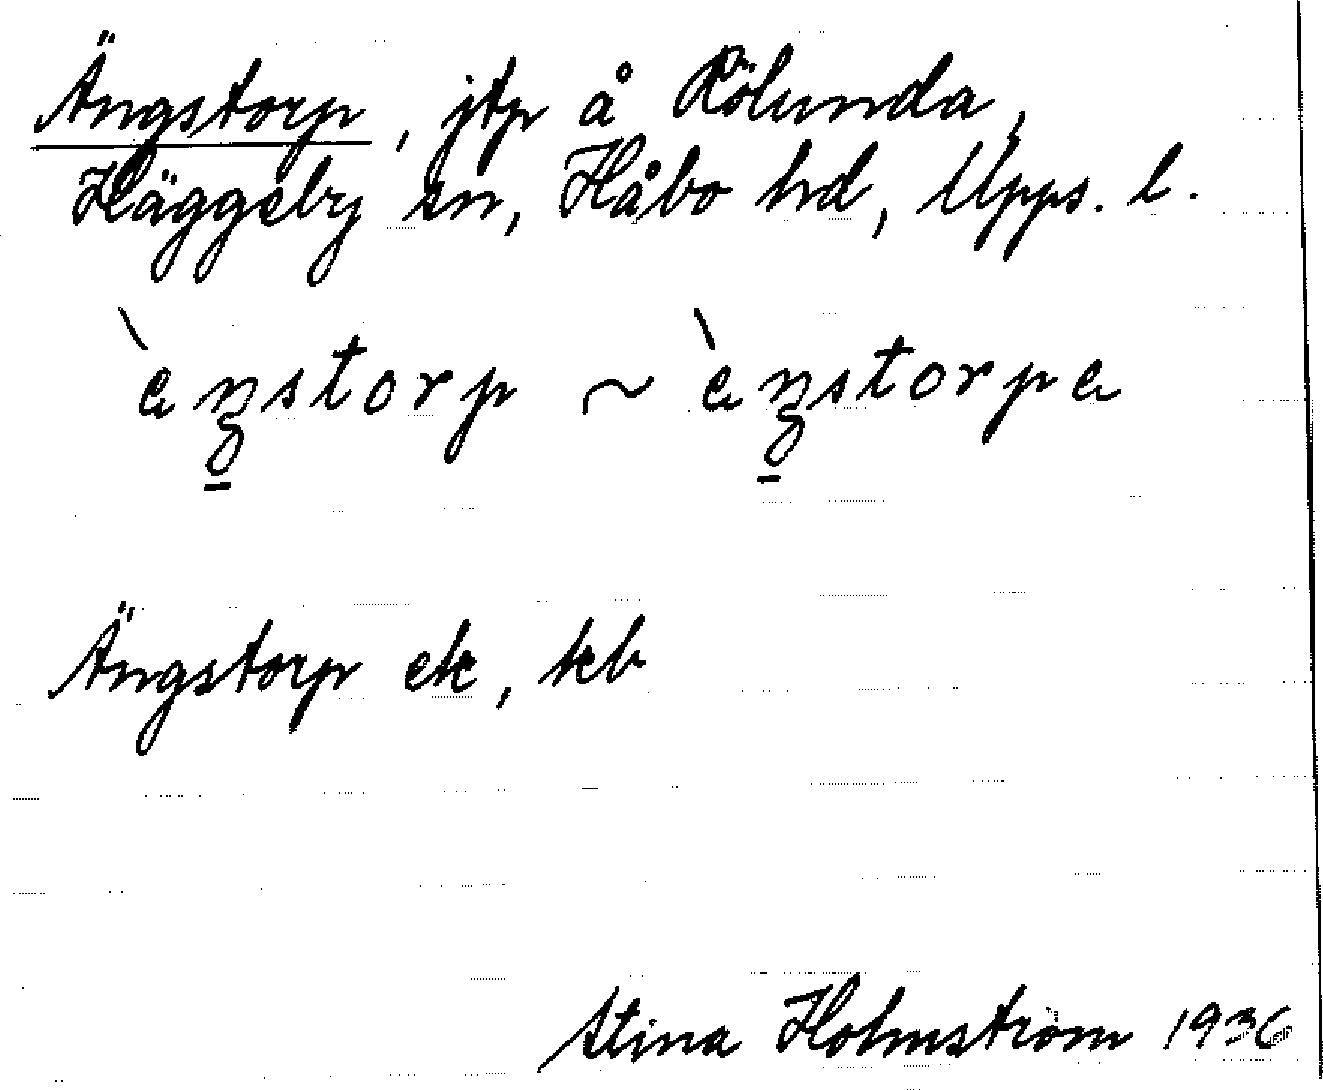 Ängstorp, jtp å Rölunda,
Häggeby sn, Håbo hd, Upps. l.
`eŋstorp ~ `eŋstorpe
Ängstorp ek, kb
Stina Holmström 1936